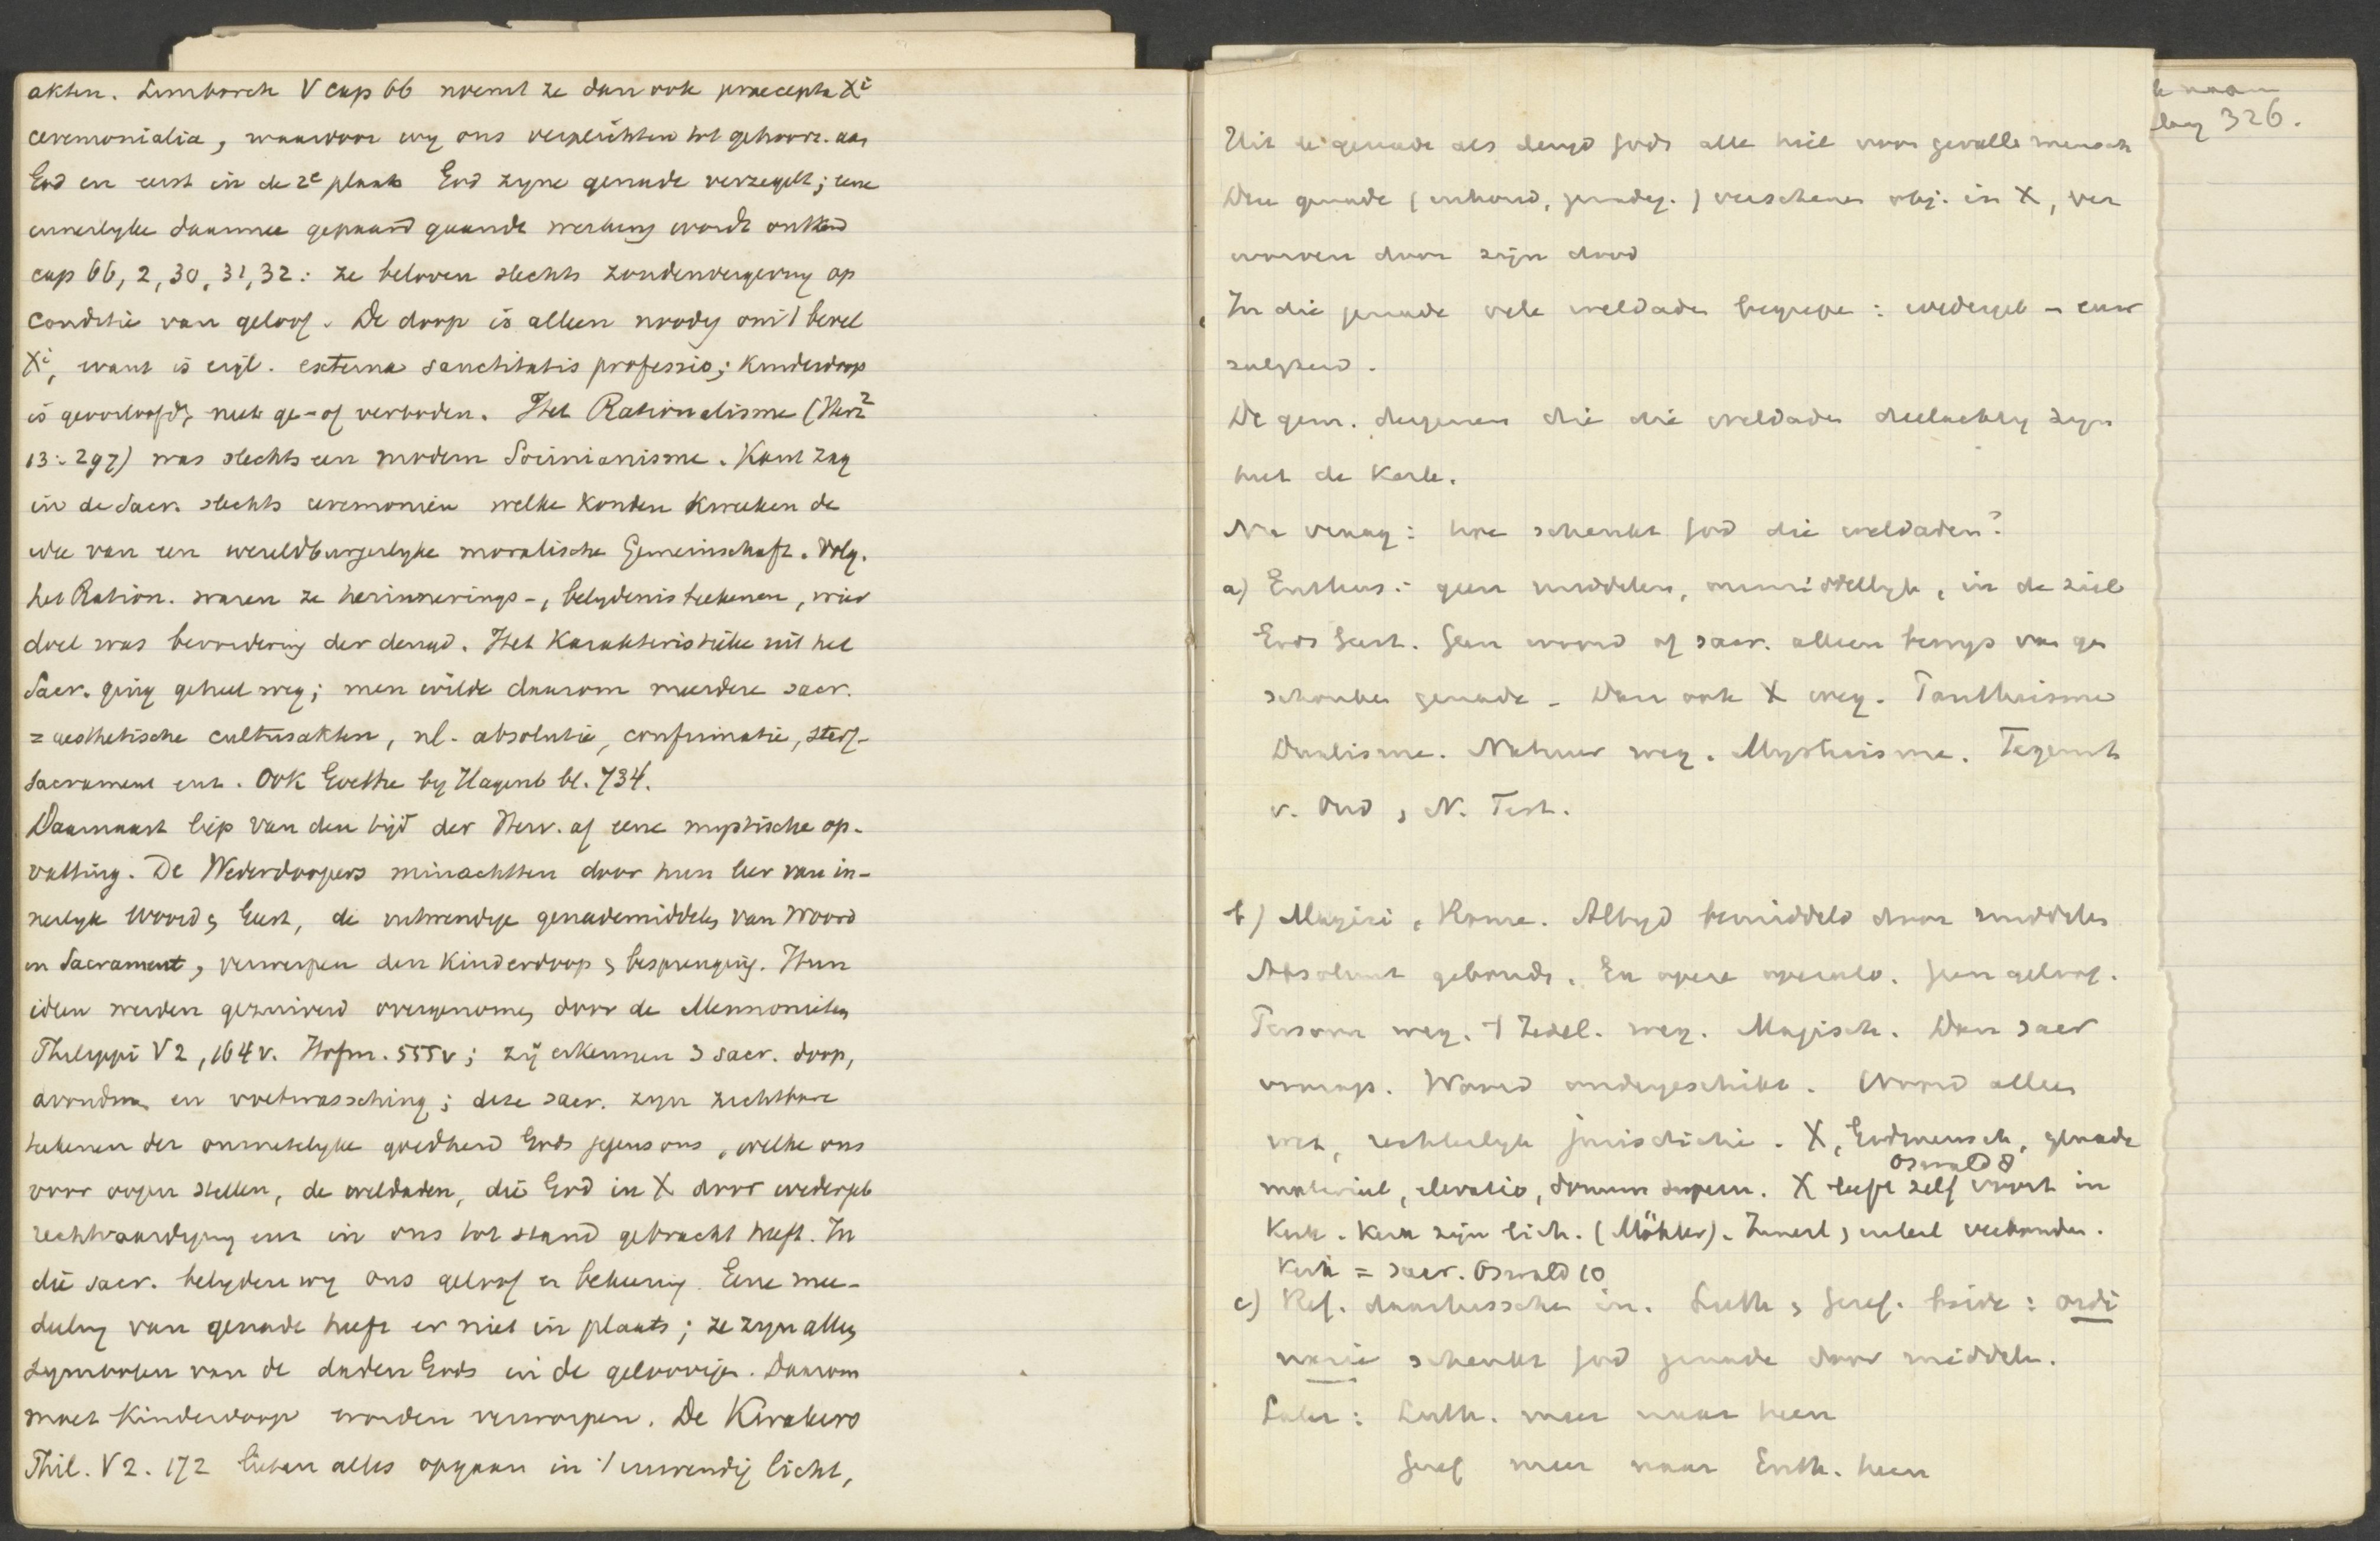 akten. Limborch V cap 66 noemt ze dan ook praecepta Xi
ceremonialia, waardoor wy ons verplichten tot gehoorz. aan
God en eerst in de 2e plaats God zyne genade verzegelt; eene
innerlyke daarmee gepaard gaande werking wordt ontkend
cap 66, 2, 30, 31, 32: ze beloven slechts zondenvergeving op
conditie van geloof. De doop is alleen noodig om 't bevel
Xi, want is eigl. externa sanctitatis professio; Kinderdoop
is geoorloofd, niet ge- of verboden. Het Rationalisme (Herz2
13: 297) was slechts een modern Socinianisme. Kant zag
in de Sacr. slechts ceremonien welke konden kweeken de
idee van een wereldburgerlyke moralische Gemeinschaft. Volg.
het Ration. waren ze herinnerings-, belydenisteekenen, wier
doel was bevordering der deugd. Het Karakteristieke uit het
Sacr. ging geheel weg; men wilde daarom meerdere sacr.
= aesthetische cultusakten, nl. absolutie, confirmatie, sterf-
sacrament enz. Ook Goethe by Hagenb bl. 734.
Daarnaast liep van den tijd der Herv. af eene mystische op-
vatting. De Wederdoopers minachtten door hun leer van in-
nerlyk woord & Geest, de uitwendige genademiddelen van Woord
en Sacrament, verwerpen den Kinderdoop & besprenging. Hun
ideen werden gezuiverd overgenomen door de Mennonieten
Philippi V 2, 164 v. Hofm. 555 v; zij erkennen 3 sacr. doop,
avondm. en voetwassching; deze sacr. zyn zichtbare
teekenen der onmetelyke goedheid Gods jegens ons, welke ons
voor oogen stellen, de weldaden, die God in X door wedergeb
rechtvaardiging enz in ons tot stand gebracht heeft. In
die sacr. belyden wy ons geloof en bekeering. Eene mee-
deeling van genade heeft er niet in plaats; ze zyn alleen
symbolen van de daden Gods in de geloovigen. Daarom
moet Kinderdoop worden verworpen. De Kwakers
Phil. V 2. 172 lieten alles opgaan in 't inwendig licht,
326.
Uit de genade als deugd Gods alle heil voor gevallen mensch
Deze genade (inhoud, ) verschenen obj. in X, ver
worven door zijn dood
In die genade vele weldaden begrepen: wedergeb - euw
zaligheid.
De gem. dergenen die die weldaden deelachtig zyn
heet de Kerk.
Nu vraag: hoe schenkt God die weldaden?
a) Enthus: geen middelen, onmiddellyk, in de ziel
Gods Geest. Geen woord of sacr. alleen bewys van ge
schonken genade - Dan ook X weg. Pantheisme
Dualisme. Natuur weg. Mysticisme. Tegenst
v. Oud & N. Test.
b) Magici, Rome. Altyd bemiddeld door middelen
Absoluut gebonden. Ex opere operato. Geen geloof.
Persoon weg. 't Zedel. weg. Magisch. Dan sacr
voorop. Woord ondergeschikt. Woord alleen
wet, rechterlyk jurisdictie. X, Godmensch, genade
Oswald 8
materieel, elevatio, donum supern. X leeft zelf voort in
Kerk. Kerk zijn lich. (Möhler). Innerl & uiterl verbonden.
Kerk = sacr. Oswald 10
c) Ref. daartusschen in. Luth & Geref. beide: ordi
narie schenkt God genade door middelen.
Later: Luth. meer naar heen
Geref meer naar Enth. heen